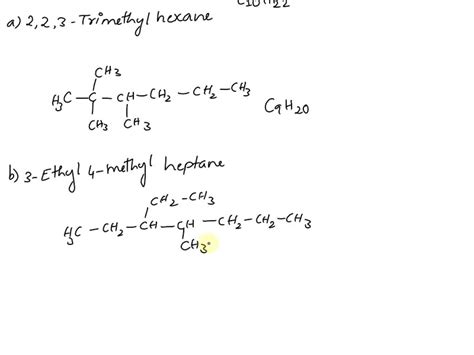 C10H22
a) 2,2,3-Trimethyl hexane
CH3
H3C-C-CH-CH2-CH2-CH3 C9H20
CH3 CH3
b) 3-Ethyl 4-methyl heptane
CH2-CH3
H3C-CH2-CH-CH-CH2-CH2-CH3
CH3